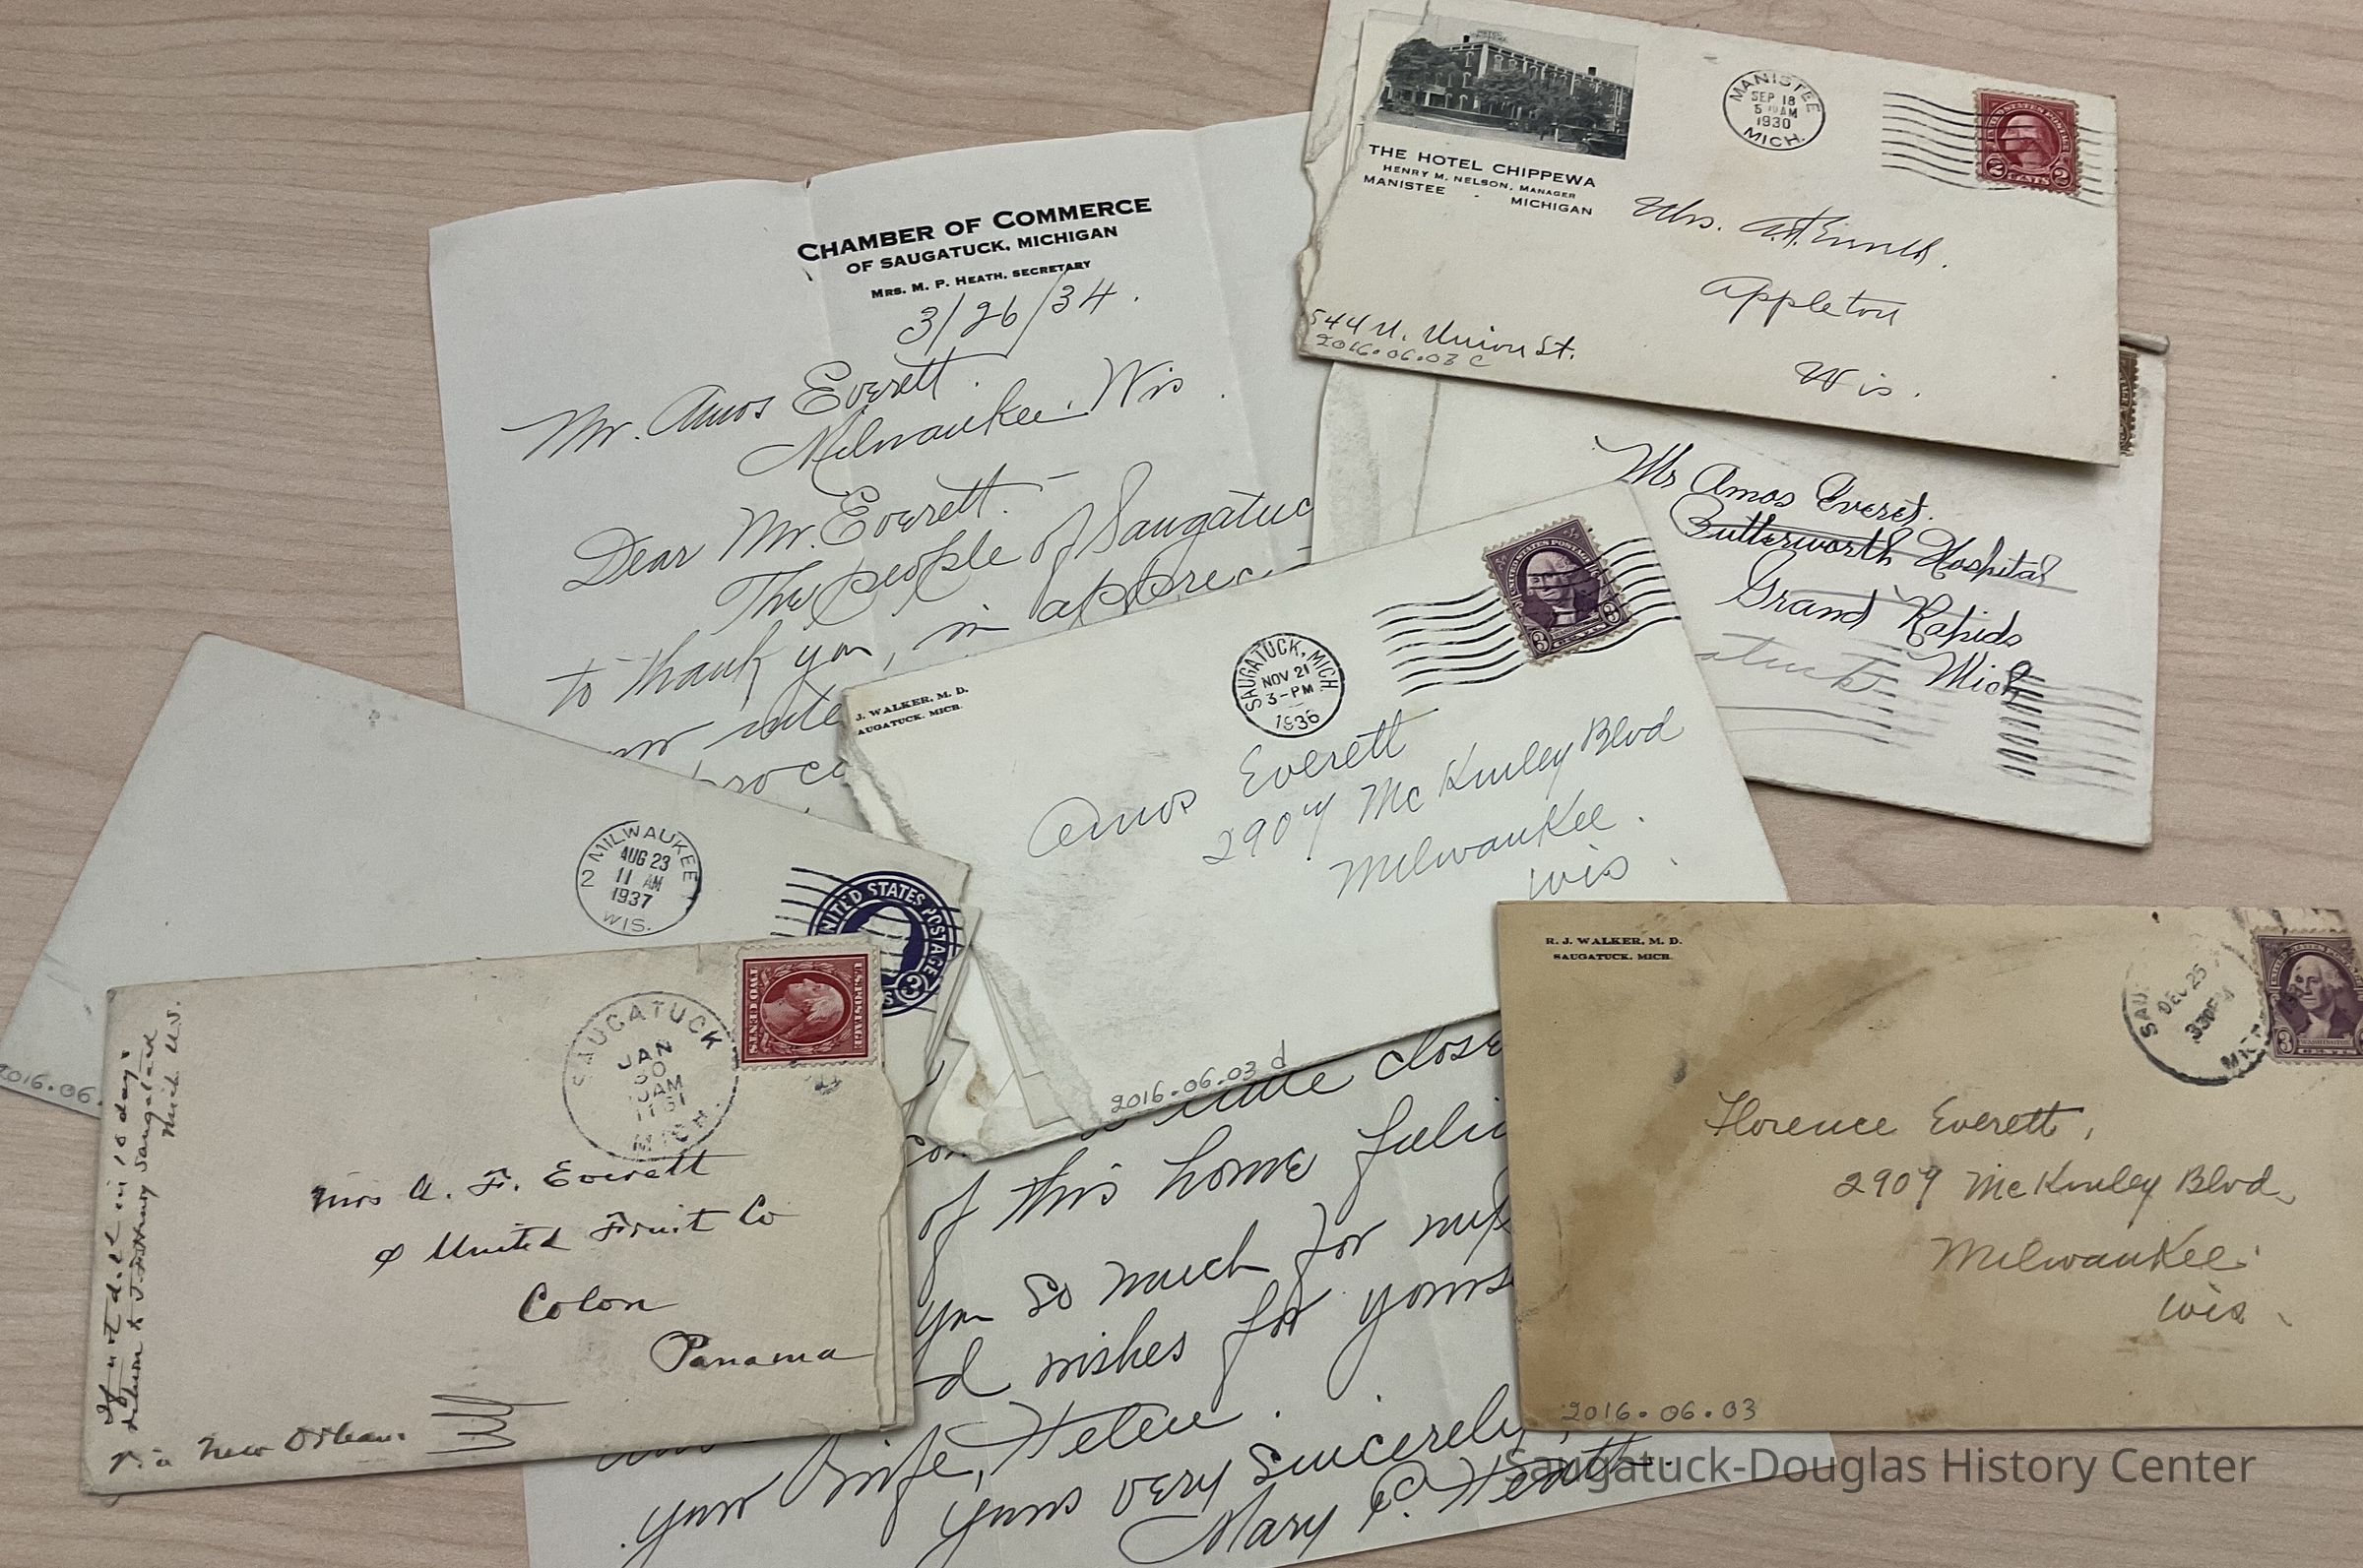 THE HOTEL CHIPPEWA
HENRY M. NELSON, MANAGER
MANISTEE - MICHIGAN
MANISTEE
SEP 18
AM
1930
MICH.
2 CENTS 2
Mrs. A.
Appleton
Wis.
544 N. Union St.
2016.06.03 C
CHAMBER OF COMMERCE
OF SAUGATUCK, MICHIGAN
MRS. M. P. HEATH, SECRETARY
3/26/34.
Mr. Amos Everett.
Milwaukee, Wis.
Dear Mr. Everett. -
The people of Saugatuc
to thank you, in apprec
Mr Amos Everet.
Butterworth Hospital
Grand Rapids
Mich
atuck
J. WALKER, M. D.
AUGATUCK, MICH.
SAUGATUCK, MICH.
NOV 21
3-PM
1936
UNITED STATES POSTAGE
3 CENTS 3
Amos Everett
2909 McKinley Blvd
Milwaukee.
Wis.
2016.06.03 d
MILWAUKEE
2
AUG 23
11 AM
1937
WIS.
UNITED STATES POSTAGE
3
2016.06.
SAUGATUCK
JAN
30
AM
MICH.
U.S. POSTAGE
TWO CENTS
Mrs A. F. Everett
United Fruit Co
Colon
Panama
Via New Orleans
If not del'd in 10 days
return to Saugatuck
Mich U.S.
close
of this home
you so much for
d wishes for yours
your wife, Helen.
Yours very sincerely,
Mary P. Heath.
R. J. WALKER, M. D.
SAUGATUCK, MICH.
SAU
DEC 25
330PM
MICH
3 CENTS
WASHINGTON
Florence Everett,
2909 McKinley Blvd,
Milwaukee.
Wis.
2016.06.03
Saugatuck-Douglas History Center